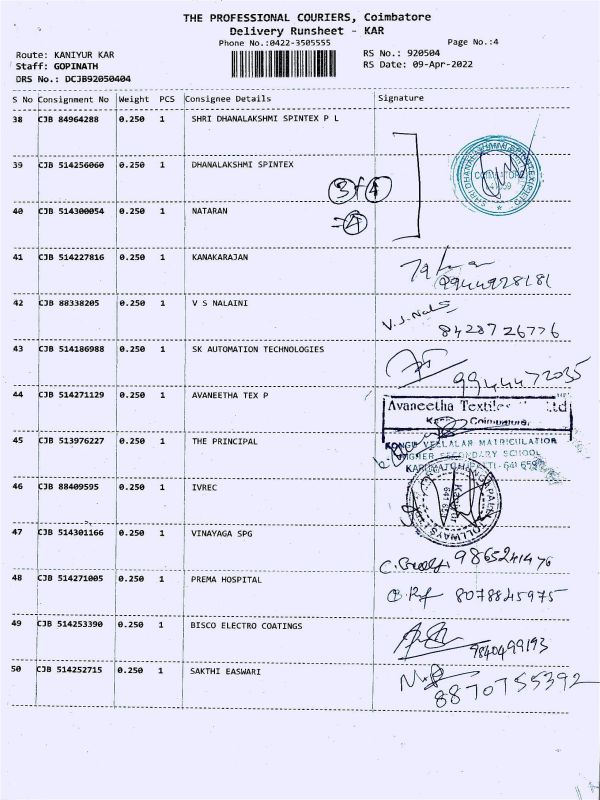 THE PROFESSIONAL COURIERS, Coimbatore
Delivery Runsheet - KAR
Phone No.:0422-3505555
Page No.:4
Route: KANIYUR KAR
RS No.: 920504
Staff: GOPINATH
RS Date: 09-Apr-2022
DRS No.: DCJB92050404
S No Consignment No Weight PCS Consignee Details Signature
38 CJB 84964288 0.250 1 SHRI DHANALAKSHMI SPINTEX P L
39 CJB 514256060 0.250 1 DHANALAKSHMI SPINTEX
3+4
40 CJB 514300054 0.250 1 NATARAN
=4
41 CJB 514227816 0.250 1 KANAKARAJAN
9944928181
42 CJB 88338205 0.250 1 V S NALAINI
V.S.Nalı
8428726776
43 CJB 514186988 0.250 1 SK AUTOMATION TECHNOLOGIES
9944472035
44 CJB 514271129 0.250 1 AVANEETHA TEX P
Avaneetha Textiles Ltd
Coimbatore
45 CJB 513976227 0.250 1 THE PRINCIPAL
KONGU VELLALAR MATRICULATION
HIGHER SECONDARY SCHOOL
KARUMATHAMPATTI - 641 659
46 CJB 88409595 0.250 1 IVREC
47 CJB 514301166 0.250 1 VINAYAGA SPG
9865241476
48 CJB 514271005 0.250 1 PREMA HOSPITAL
8078845975
49 CJB 514253390 0.250 1 BISCO ELECTRO COATINGS
9840499193
50 CJB 514252715 0.250 1 SAKTHI EASWARI
8870755392